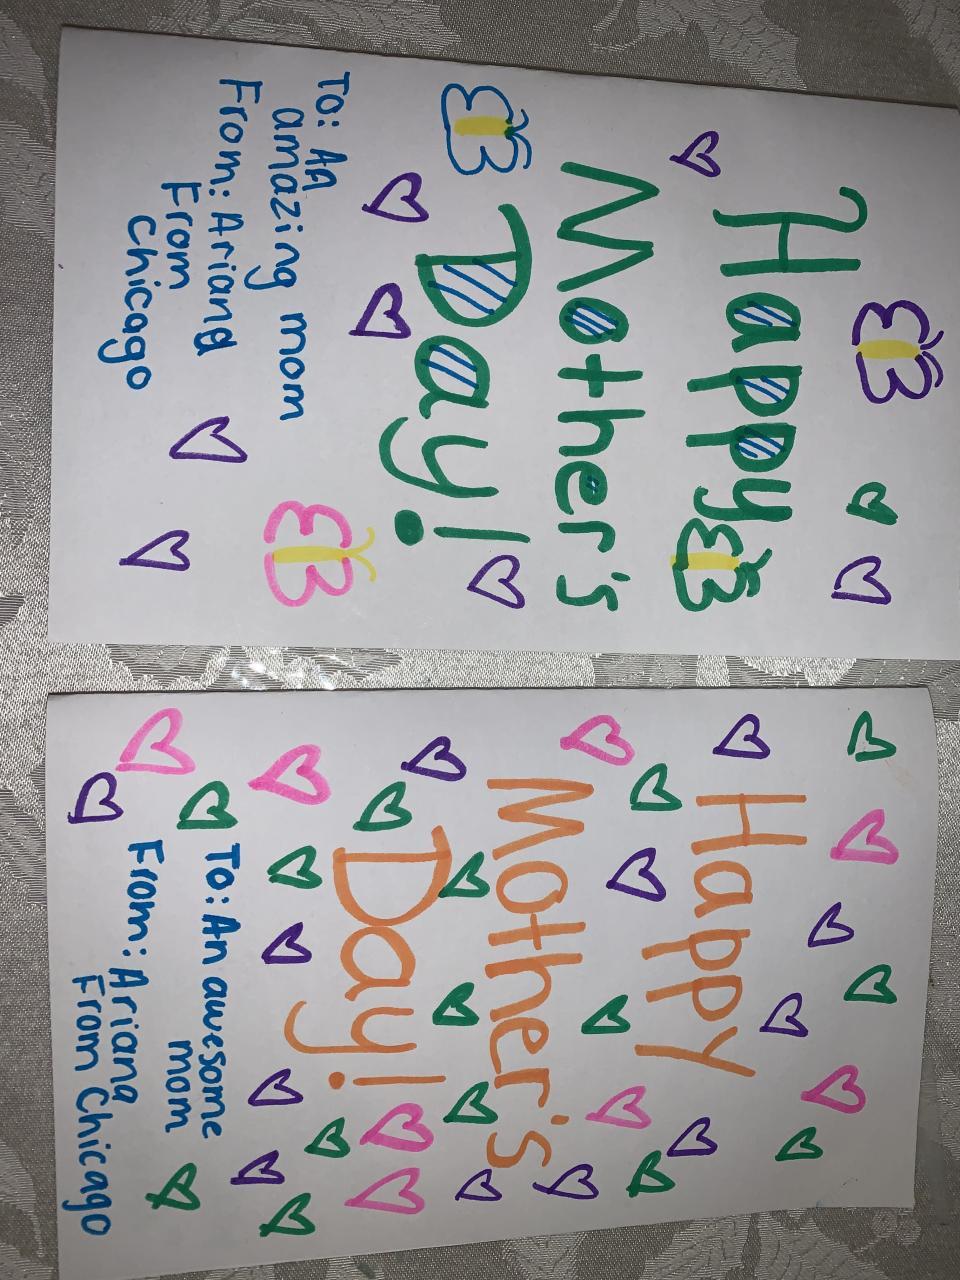 Happy
Mother's
Day!
To: AA
amazing mom
From: Ariana
From
Chicago
Happy
Mother's
Day!
To: An awesome
mom
From: Ariana
From Chicago